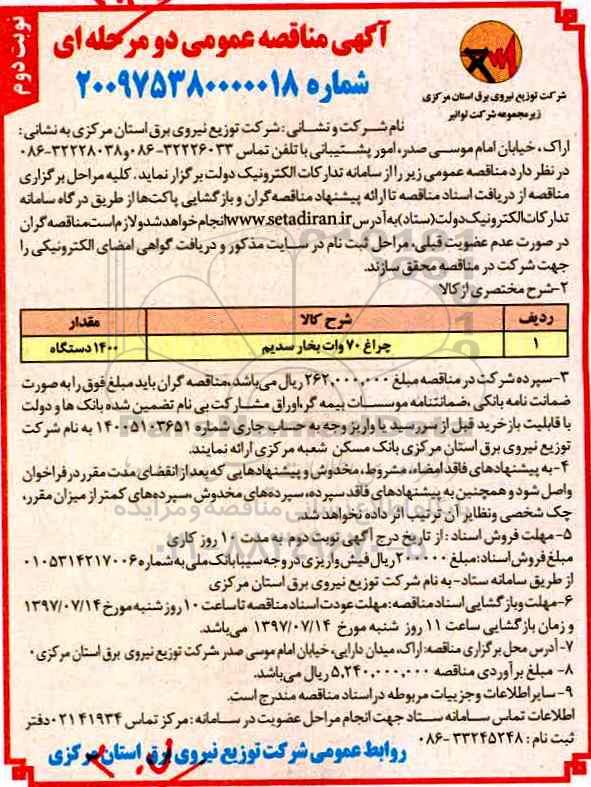 نوبت دوم
آگهی مناقصه عمومی دو مرحله ای
شماره ۲۰۰۹۷۵۳۸۰۰۰۰۰۱۸
شرکت توزیع نیروی برق استان مرکزی
زیر مجموعه شرکت توانیر
نام شرکت و نشانی : شرکت توزیع نیروی برق استان مرکزی به نشانی :
اراک، خیابان امام موسی صدر، امور پشتیبانی با تلفن تماس ۳۲۲۲۶۰۳۳-۰۸۶ و ۳۲۲۲۸۰۳۸-۰۸۶
در نظر دارد مناقصه عمومی زیر را از سامانه تدارکات الکترونیک دولت برگزار نماید. کلیه مراحل برگزاری
مناقصه از دریافت اسناد مناقصه تا ارائه پیشنهاد مناقصه گران و بازگشایی پاکت‌ها از طریق درگاه سامانه
تدارکات الکترونیک دولت (ستاد) به آدرس www.setadiran.ir انجام خواهد شد و لازم است مناقصه گران
در صورت عدم عضویت قبلی، مراحل ثبت نام در سایت مذکور و دریافت گواهی امضای الکترونیکی را
جهت شرکت در مناقصه محقق سازند.
۲-شرح مختصری از کالا
ردیف شرح کالا مقدار
۱ چراغ ۷۰ وات بخار سدیم ۱۴۰۰ دستگاه
۳-سپرده شرکت در مناقصه مبلغ ۲۶۲,۰۰۰,۰۰۰ ریال می‌باشد، مناقصه گران باید مبلغ فوق را به صورت
ضمانت نامه بانکی، ضمانتنامه موسسات بیمه گر، اوراق مشارکت بی نام تضمین شده بانک ها و دولت
با قابلیت بازخرید قبل از سررسید یا واریز وجه به حساب جاری شماره ۱۴۰۰۵۱۰۳۶۵۱ به نام شرکت
توزیع نیروی برق استان مرکزی بانک مسکن شعبه مرکزی ارائه نمایند.
۴- به پیشنهادهای فاقد امضاء، مشروط، مخدوش و پیشنهادهایی که بعد از انقضای مدت مقرر در فراخوان
واصل شود و همچنین به پیشنهادهای فاقد سپرده، سپرده‌های مخدوش، سپرده‌های کمتر از میزان مقرر،
چک شخصی و نظایر آن ترتیب اثر داده نخواهد شد.
۵- مهلت فروش اسناد : از تاریخ درج آگهی نوبت دوم به مدت ۱۰ روز کاری
مبلغ فروش اسناد: مبلغ ۲۰۰۰۰۰ ریال فیش واریزی در وجه سیبا بانک ملی به شماره ۰۱۰۵۳۱۴۲۱۷۰۰۶
از طریق سامانه ستاد- به نام شرکت توزیع نیروی برق استان مرکزی
۶-مهلت و بازگشایی اسناد مناقصه: مهلت عودت اسناد مناقصه تا ساعت ۱۰ روز شنبه مورخ ۱۳۹۷/۰۷/۱۴
و زمان بازگشایی ساعت ۱۱ روز شنبه مورخ ۱۳۹۷/۰۷/۱۴ می‌باشد.
۷- آدرس محل برگزاری مناقصه: اراک، میدان دارایی، خیابان امام موسی صدر، شرکت توزیع نیروی برق استان مرکزی.
۸- مبلغ برآوردی مناقصه ۵,۲۴۰,۰۰۰,۰۰۰ ریال می‌باشد.
۹- سایر اطلاعات و جزییات مربوطه در اسناد مناقصه مندرج است.
اطلاعات تماس سامانه ستاد جهت انجام مراحل عضویت در سامانه : مرکز تماس ۰۲۱۴۱۹۳۴ دفتر
ثبت نام : ۳۳۲۴۵۲۴۸-۰۸۶
روابط عمومی شرکت توزیع نیروی برق استان مرکزی